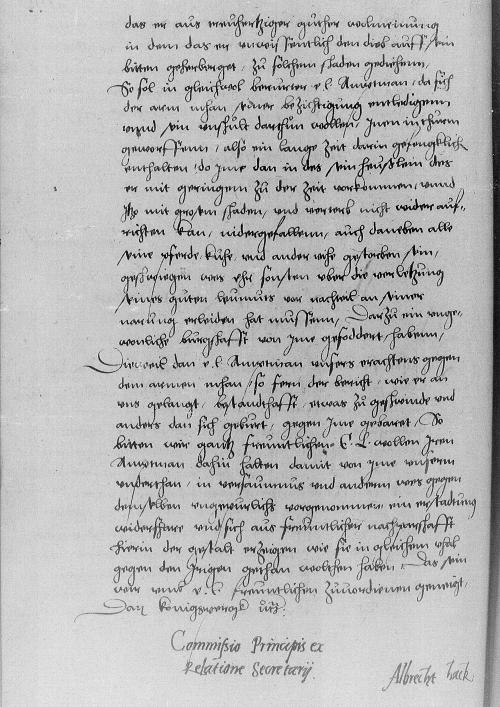 das er aus treuhertziger guther wolmeinung
in dem das er unwissentlich den dieb auff sein
bitten geherberget, zu solchem schaden gediehenn,
So sol in gleichwol berurter e. l. Amptman, da sich
der arm mhan seiner bezichtigung entledigenn
unnd sein unschult darthun wollen, Inen in thurm
geworffenn, also ein lange zeit darin gefengklich
enthalten, do Ime dan in des sein heuslein des
er mit geringem zu der zeit vorkommen, unnd
Itzo mit grossem schaden, und vorterb nicht wider auf-
richten kan, nidergefallenn, auch daneben alle
seine pferde kuhe, und ander vihe gestorben sein,
geschwiegen was ehr sonsten uber die verletzung
seines guten leumuts vor nachteil an seiner
narung erleiden hat mussenn, Darzu ein unge-
wonliche burgschafft von Ime gefoddert habenn,
Dieweil dan e. l. Amptman unsers erachtens gegen
dem armen mhan, so fern der bericht, wie er an
uns gelangt, bestandthafft, etwas zu geschwinde und
anders dan sich geburt, gegen Ime gebaret, So
bitten wir gantz freuntlichen E. L. wollen Iren
Amptman dahin halten damit von Ime unserm
underthan, in versaumnus und anderm was gegen
demselben ungewurlichs vorgenommen, ein erstadtung
widerfhare und sich aus freuntlicher nachparschafft
hierin der gestalt erzeigen wie sie in gleichem vhal
gegen den Irigen gethan wolthen haben, Das sein
wir umb e. l. freuntlichen zuvordienen geneigt,
Dat. Konigspergk ut s.
Commissio Principis ex
Relatione Secretarij.
Albrecht hack